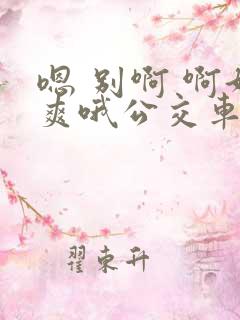 嗯 别啊 啊好
爽哦公交车
翟东升